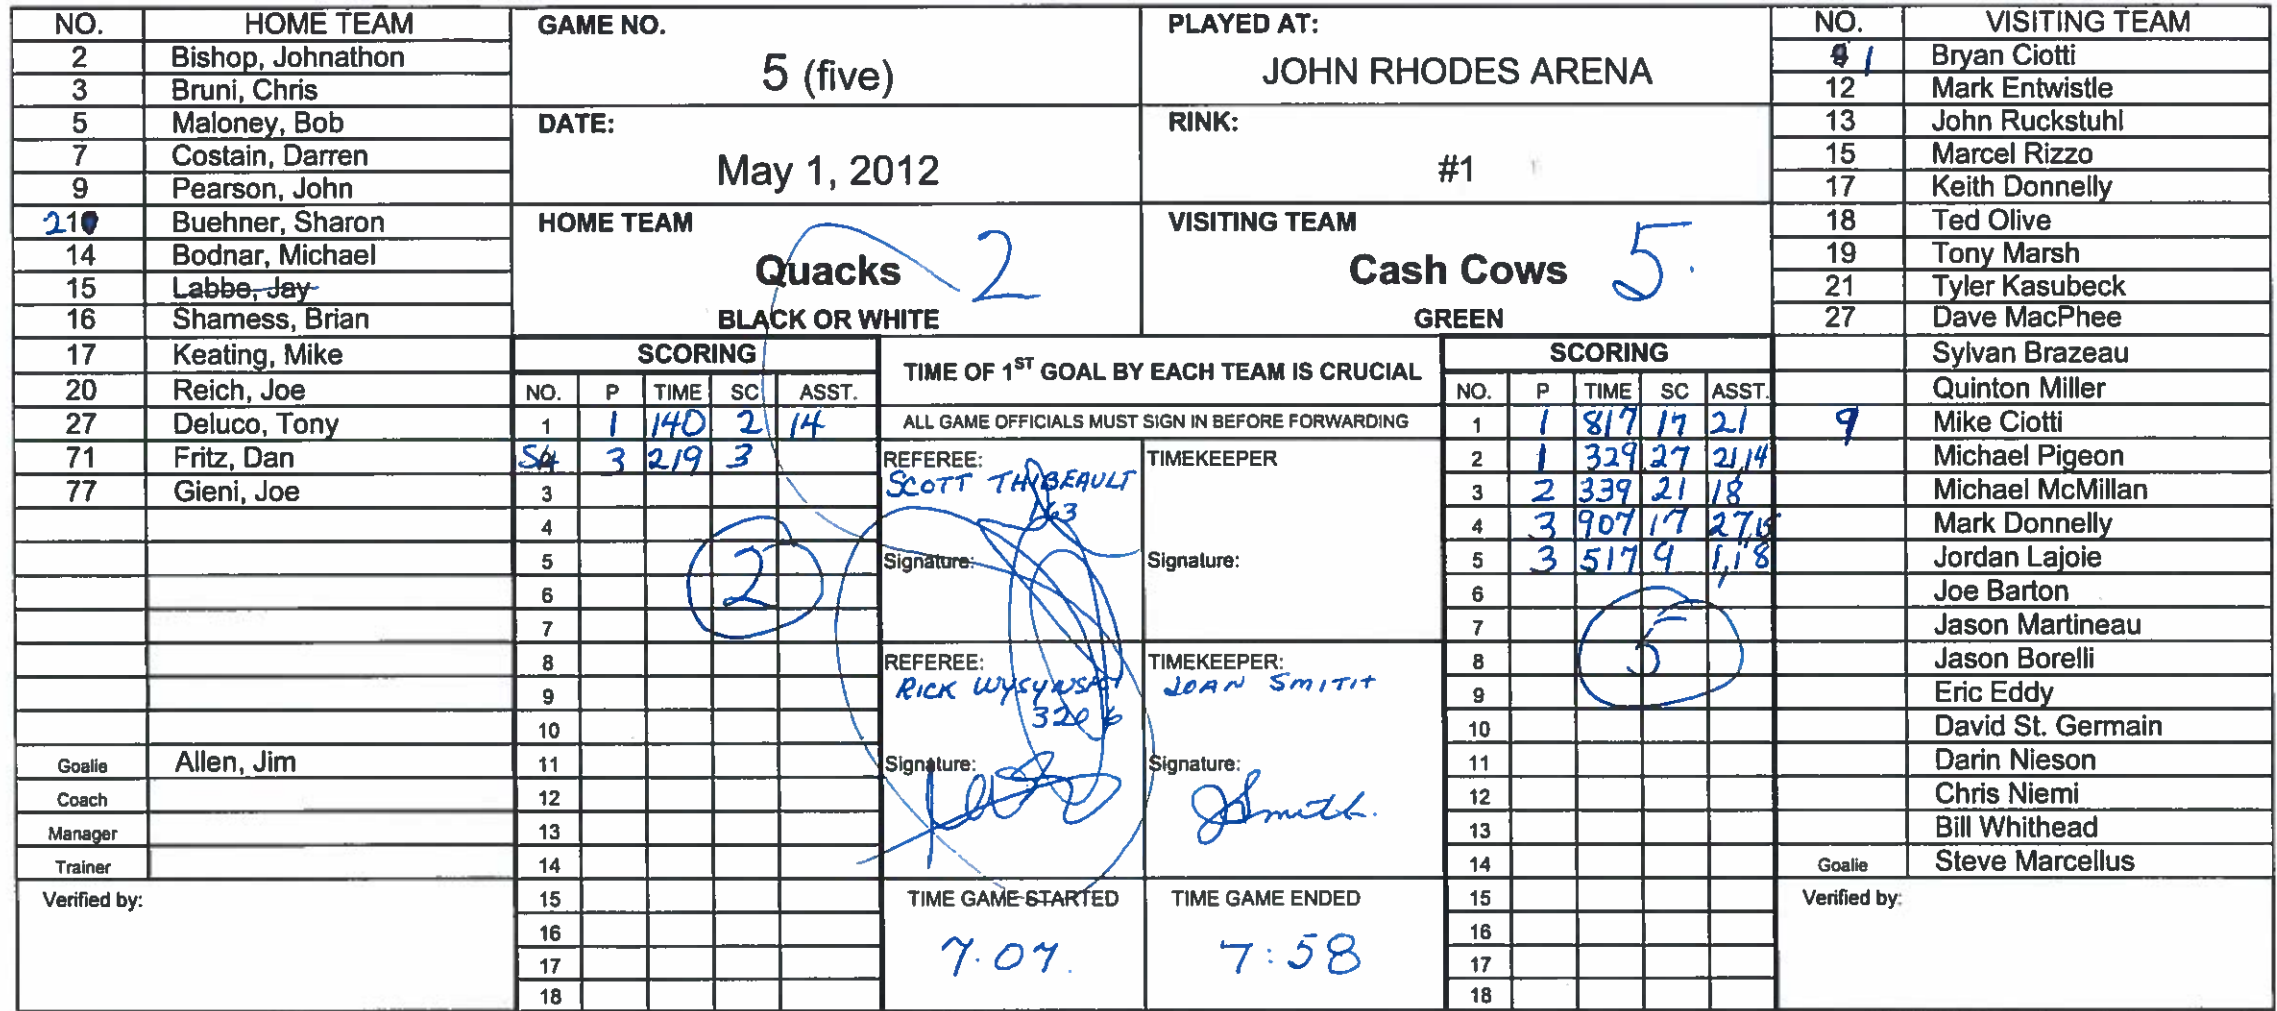 NO. HOME TEAM
2 Bishop, Johnathon
3 Bruni, Chris
5 Maloney, Bob
7 Costain, Darren
9 Pearson, John
21 Buehner, Sharon
14 Bodnar, Michael
15 Labbe, Jay
16 Shamess, Brian
17 Keating, Mike
20 Reich, Joe
27 Deluco, Tony
71 Fritz, Dan
77 Gieni, Joe
Goalie Allen, Jim
Coach
Manager
Trainer
Verified by:
GAME NO.
5 (five)
PLAYED AT:
JOHN RHODES ARENA
DATE:
May 1, 2012
RINK:
#1
HOME TEAM
Quacks 2
BLACK OR WHITE
VISITING TEAM
Cash Cows 5.
GREEN
SCORING
NO. P TIME SC ASST.
1 1 140 2 14
3 219 3
3
4
5
6
7
8
9
10
11
12
13
14
15
16
17
18
2
TIME OF 1ST GOAL BY EACH TEAM IS CRUCIAL
ALL GAME OFFICIALS MUST SIGN IN BEFORE FORWARDING
REFEREE:
SCOTT THIBEAULT
Signature:
TIMEKEEPER
Signature:
REFEREE:
RICK
Signature:
TIMEKEEPER:
JOAN SMITH
Signature:
JSmith.
TIME GAME STARTED
7.07.
TIME GAME ENDED
7:58
SCORING
NO. P TIME SC ASST.
1 1 817 17 21
2 1 329 27 21,14
3 2 339 21 18
4 3 907 17 27,15
5 3 517 9 1,18
6
7
8
9
10
11
12
13
14
15
16
17
18
5
NO. VISITING TEAM
1 Bryan Ciotti
12 Mark Entwistle
13 John Ruckstuhl
15 Marcel Rizzo
17 Keith Donnelly
18 Ted Olive
19 Tony Marsh
21 Tyler Kasubeck
27 Dave MacPhee
Sylvan Brazeau
Quinton Miller
9 Mike Ciotti
Michael Pigeon
Michael McMillan
Mark Donnelly
Jordan Lajoie
Joe Barton
Jason Martineau
Jason Borelli
Eric Eddy
David St. Germain
Darin Nieson
Chris Niemi
Bill Whithead
Goalie Steve Marcellus
Verified by: